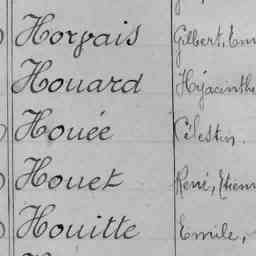 Horvais Gilbert, Em
Houard Hyacinthe
Houée Célestin.
Houet René, Etien
Houitte Emile,